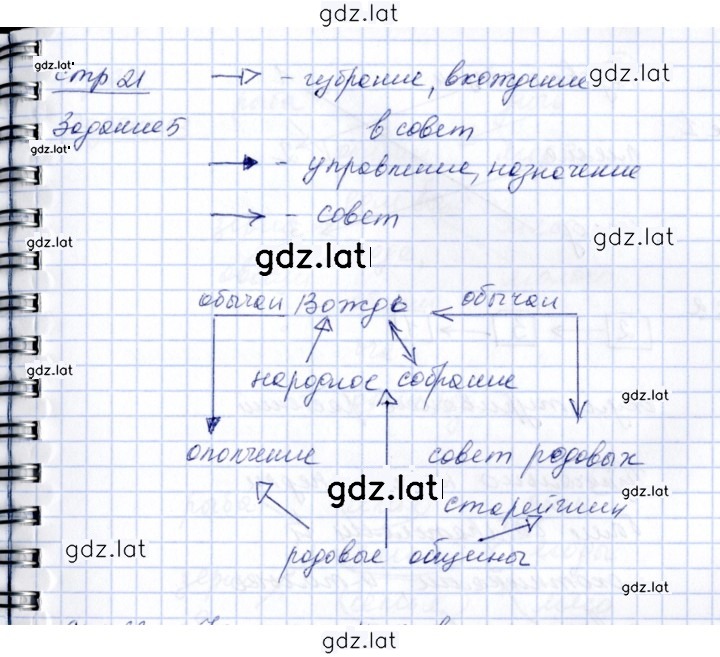 gdz.lat
gdz.lat
стр 21 — избрание, вхождение gdz.lat
Задание 5 в совет
gdz.lat
- управление, назначение
- совет
gdz.lat gdz.lat
gdz.lat
обычаи Вождь обычаи
gdz.lat
народное собрание
gdz.lat
ополчение совет родовых
gdz.lat
gdz.lat старейшин
gdz.lat
родовые общины
gdz.lat
gdz.lat
gdz.lat